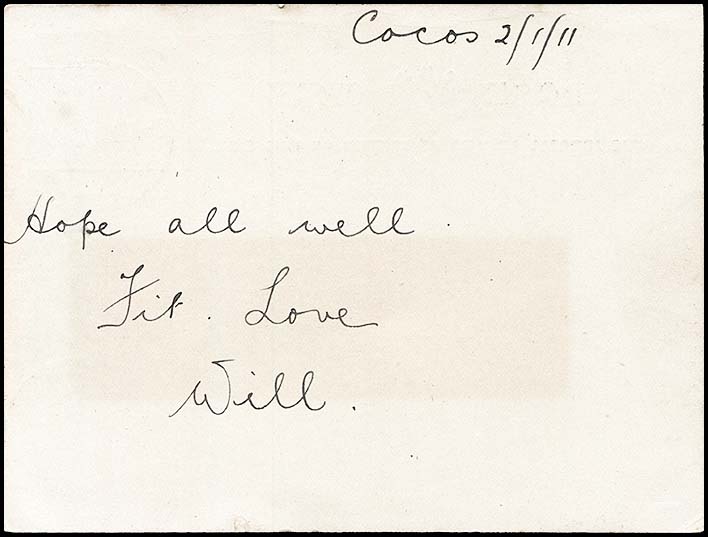 Cocos 2/1/11
Hope all well.
Fit. Love
Will.